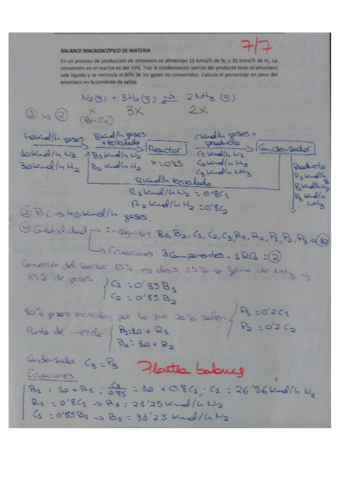 7/7
BALANCE MACROSCÓPICO DE MATERIA
En un proceso de producción de amoniaco se alimentan 10 kmol/h de N2 y 30 kmol/h de H2. La
conversión en el reactor es del 15%. Tras la condensación parcial del producto todo el amoniaco
sale líquido y se recircula el 80% de los gases no convertidos. Calcula el porcentaje en peso del
amoniaco en la corriente de salida.
N2(g) + 3H2(g) ⇌ 2NH3 (g)
x 3x 2x
① → ②
40 kmol/h gases B kmol/h gases C kmol/h gases +
+ recirculado producto
Reactor Condensador
10 kmol/h N2 B1 kmol/h N2 x=0'15 C1 kmol/h N2 Producto
30 kmol/h H2 B2 kmol/h H2 C2 kmol/h H2 P1 kmol/h N2
C3 kmol/h NH3 P2 kmol/h H2
R kmol/h recirculado P3 kmol/h NH3
R1 kmol/h N2 = 0'8C1
R2 kmol/h H2 = 0'8C2
③ BC → 40 kmol/h gases.
④ Contabilidad → Incógnitas B1, B2, C1, C2, C3, R1, R2, P1, P2, P3 → ⑩
Ecuaciones 3 componentes - 1 RQ = ②
Conversión del reactor 15%, es decir, 15% se forma de NH3 y
85% de gases C1 = 0'85 B1
C2 = 0'85 B2
80% gases recirculan, por lo que 20% salen P1 = 0'2 C1
P2 = 0'2 C2
Punto de mezcla B1 = 10 + R1
B2 = 30 + R2
Condensador: C3 = P3 Plantear balance
Ecuaciones
B1 = 10 + R1, C1/0'85 = 10 + 0'8C1, C1 = 26'56 kmol/h N2
R1 = 0'8C1 → R1 = 21'25 kmol/h N2
C1 = 0'85B1 → B1 = 31'25 kmol/h N2